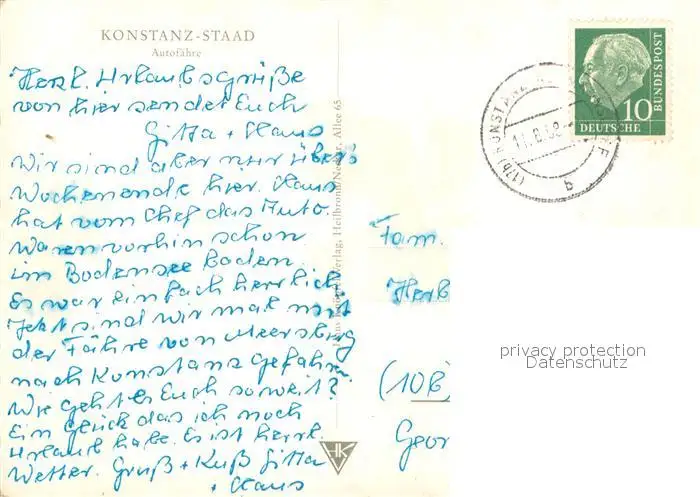 KONSTANZ-STAAD
Autofähre
Herzl. Urlaubsgrüße
von hier sendet Euch
Gitta + Klaus
Wir sind aber nur übers
Wochenende hier. Klaus
hat vom Chef das Auto.
Waren vorhin schon
im Bodensee baden.
Es war einfach herrlich
Jetzt sind wir mal mit
der Fähre von Meersburg
nach Konstanz gefahren.
Wie geht es Euch soweit?
Ein Glück das ich noch
Urlaub habe. Es ist herrl.
Wetter. Gruß + Kuß Gitta
+ Klaus
Verlag, Heilbronn/Neckar, Allee 65
HK
10
BUNDESPOST
DEUTSCHE
(17b) KONSTANZ
11.8.58
q
Fam.
Herb
(10B)
Geor
privacy protection
Datenschutz